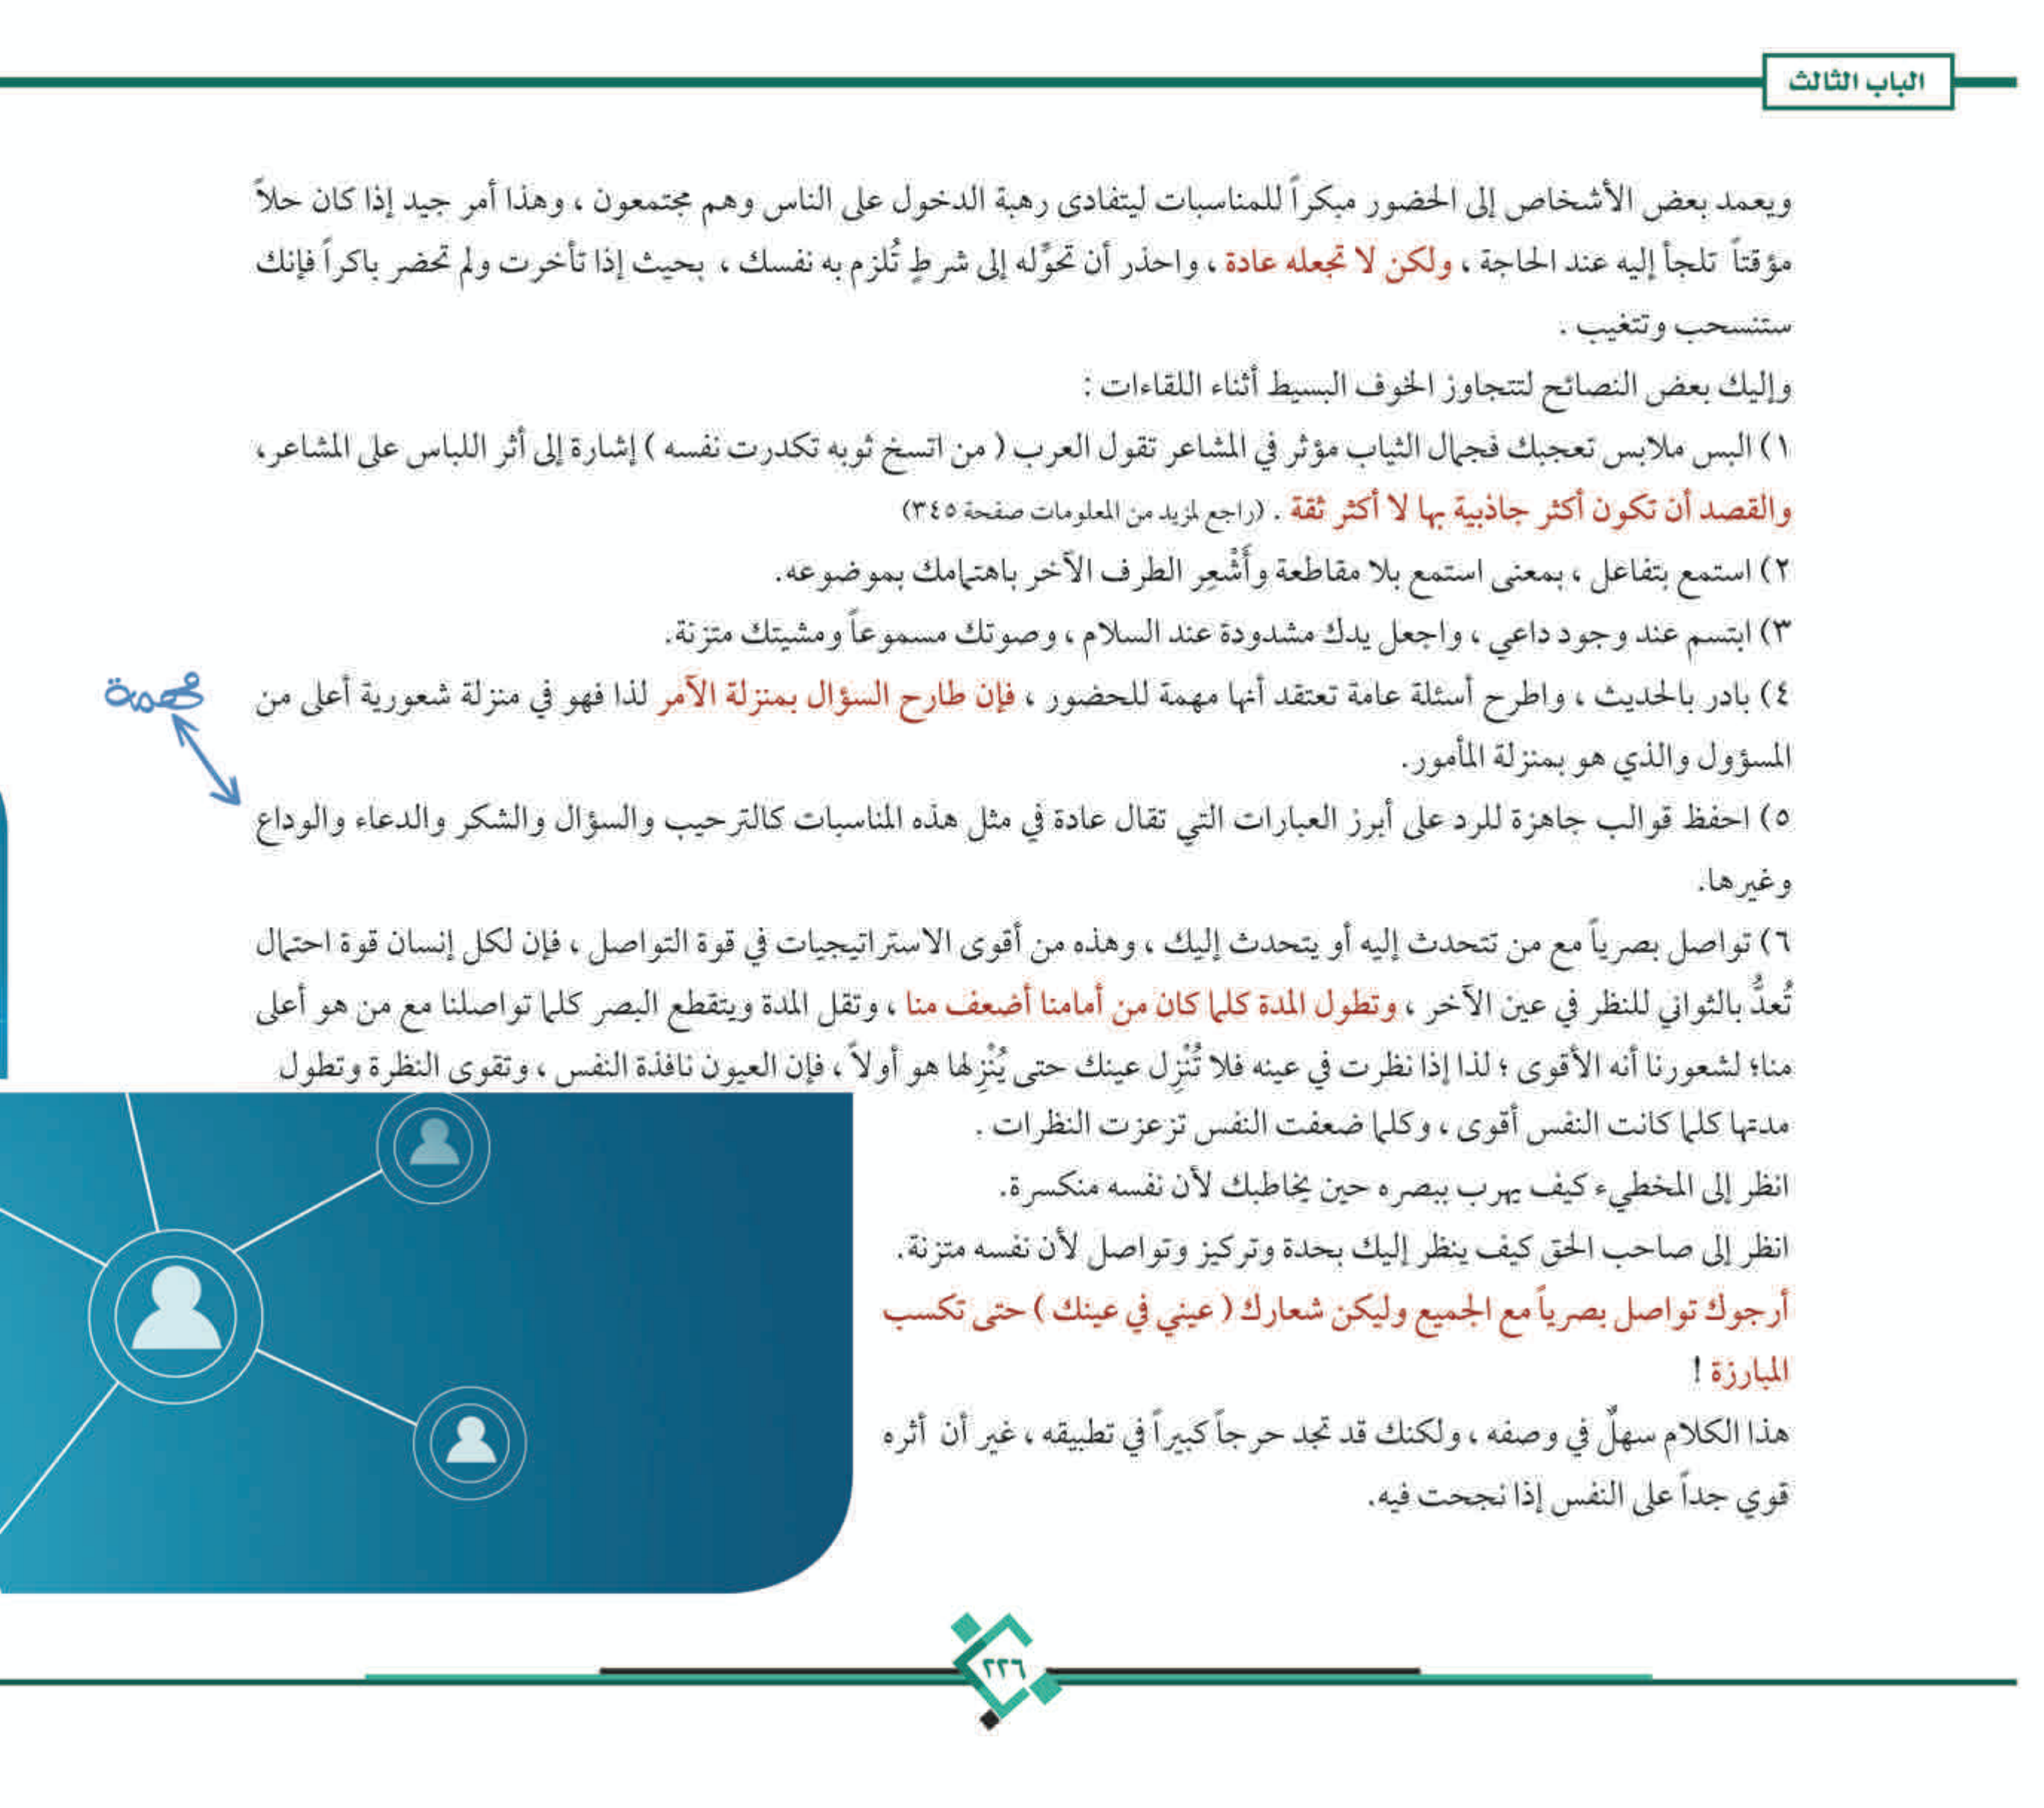 الباب الثالث
ويعمد بعض الأشخاص إلى الحضور مبكراً للمناسبات ليتفادى رهبة الدخول على الناس وهم مجتمعون ، وهذا أمر جيد إذا كان حلاً
مؤقتاً تلجأ إليه عند الحاجة ، ولكن لا تجعله عادة ، واحذر أن تحوِّله إلى شرطٍ تُلزم به نفسك ، بحيث إذا تأخرت ولم تحضر باكراً فإنك
ستنسحب وتتغيب .
وإليك بعض النصائح لتتجاوز الخوف البسيط أثناء اللقاءات :
١) البس ملابس تعجبك فجمال الثياب مؤثر في المشاعر تقول العرب ( من اتسخ ثوبه تكدرت نفسه ) إشارة إلى أثر اللباس على المشاعر،
والقصد أن تكون أكثر جاذبية بها لا أكثر ثقة . (راجع لمزيد من المعلومات صفحة ٣٤٥)
٢) استمع بتفاعل ، بمعنى استمع بلا مقاطعة وأَشْعِر الطرف الآخر باهتمامك بموضوعه.
٣) ابتسم عند وجود داعي ، واجعل يدك مشدودة عند السلام ، وصوتك مسموعاً ومشيتك متزنة.
٤) بادر بالحديث ، واطرح أسئلة عامة تعتقد أنها مهمة للحضور ، فإن طارح السؤال بمنزلة الآمر لذا فهو في منزلة شعورية أعلى من
مهمة
المسؤول والذي هو بمنزلة المأمور.
٥) احفظ قوالب جاهزة للرد على أبرز العبارات التي تقال عادة في مثل هذه المناسبات كالترحيب والسؤال والشكر والدعاء والوداع
وغيرها.
٦) تواصل بصرياً مع من تتحدث إليه أو يتحدث إليك ، وهذه من أقوى الاستراتيجيات في قوة التواصل ، فإن لكل إنسان قوة احتمال
تُعدُّ بالثواني للنظر في عين الآخر ، وتطول المدة كلما كان من أمامنا أضعف منا ، وتقل المدة ويتقطع البصر كلما تواصلنا مع من هو أعلى
منا؛ لشعورنا أنه الأقوى ؛ لذا إذا نظرت في عينه فلا تُنْزِل عينك حتى يُنْزِلها هو أولاً ، فإن العيون نافذة النفس ، وتقوى النظرة وتطول
مدتها كلما كانت النفس أقوى ، وكلما ضعفت النفس تزعزت النظرات .
انظر إلى المخطيء كيف يهرب ببصره حين يخاطبك لأن نفسه منكسرة.
انظر إلى صاحب الحق كيف ينظر إليك بحدة وتركيز وتواصل لأن نفسه متزنة.
أرجوك تواصل بصرياً مع الجميع وليكن شعارك ( عيني في عينك ) حتى تكسب
المبارزة !
هذا الكلام سهلٌ في وصفه ، ولكنك قد تجد حرجاً كبيراً في تطبيقه ، غير أن أثره
قوي جداً على النفس إذا نجحت فيه.
٢٢٦